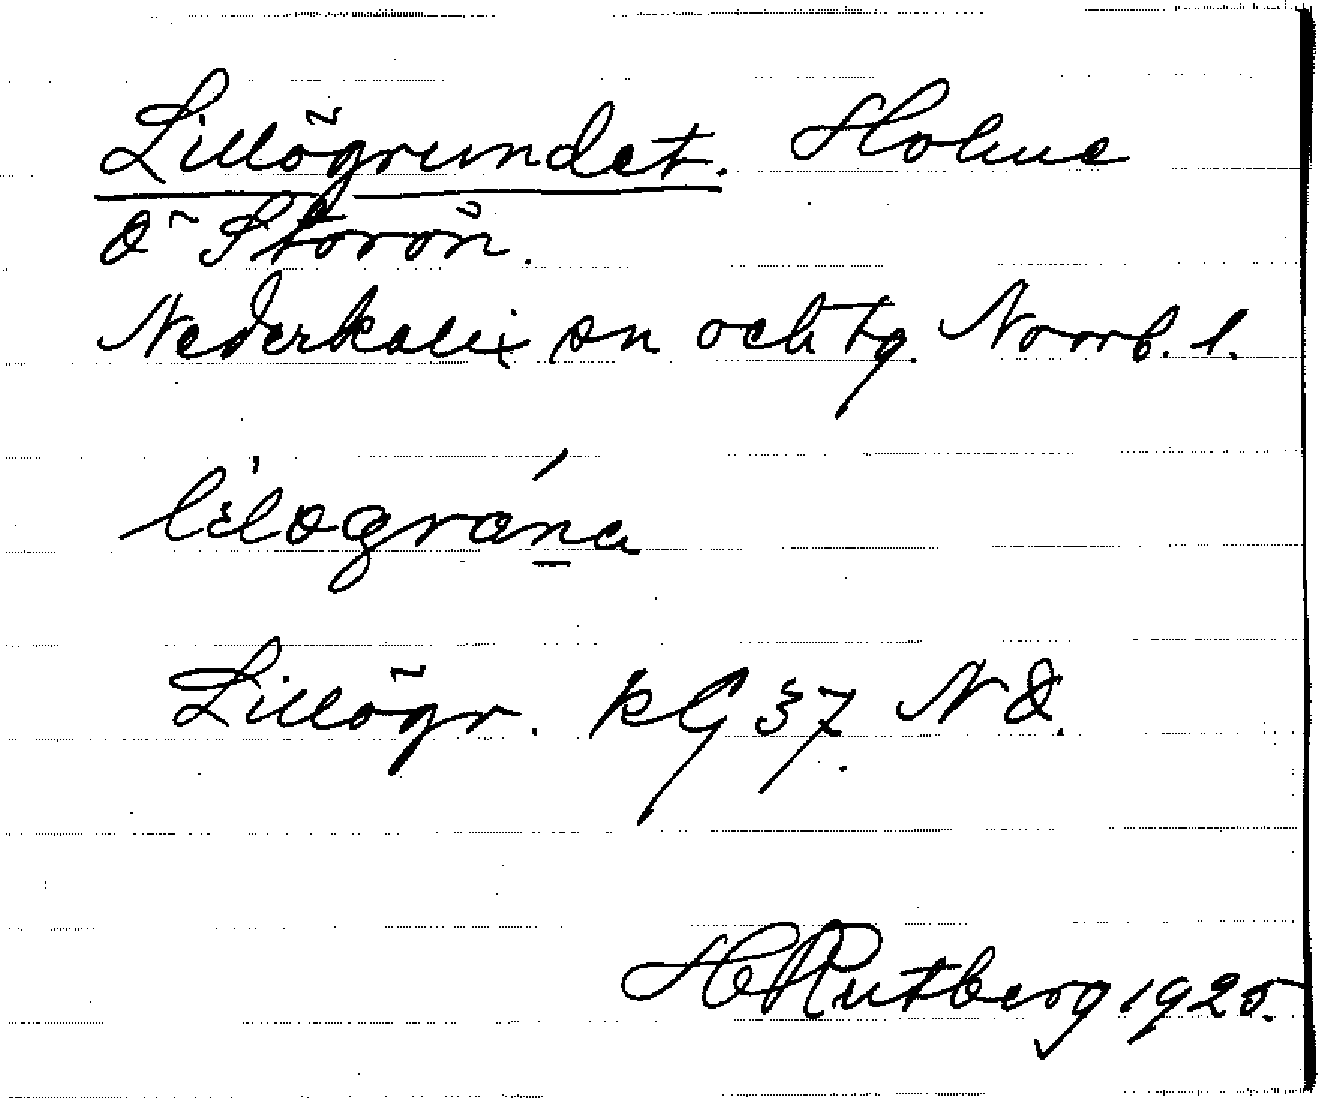 Lillögrundet. Holme
Ö Storön.
Nederkalix sn och tg. Norrb. l.
lílográna
Lillögr. kG 37 NÖ.
H Rutberg 1925.